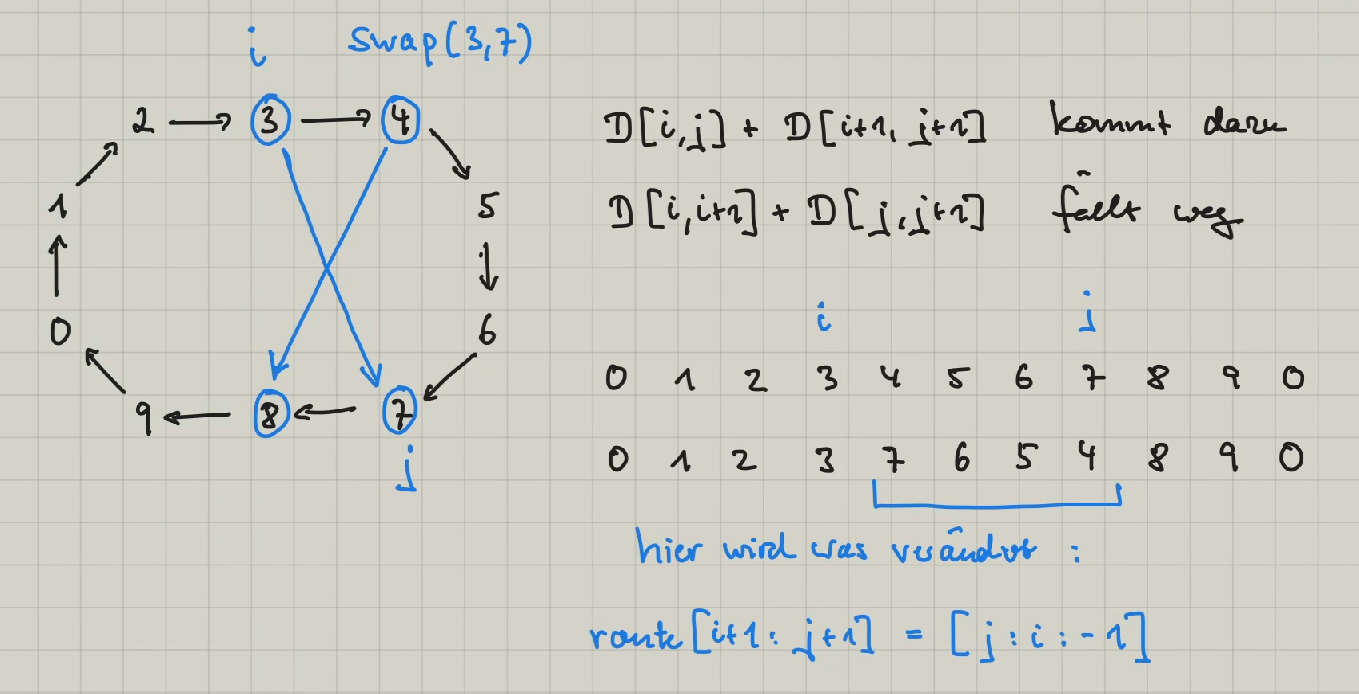 i swap(3,7)
2 3 4
D[i,j] + D[i+1, j+1] kommt dazu
1 5
D[i,i+1] + D[j,j+1] fällt weg
0 6
i j
0 1 2 3 4 5 6 7 8 9 0
9 8 7
j
0 1 2 3 7 6 5 4 8 9 0
hier wird was verändert :
route[i+1: j+1] = [j:i:-1]